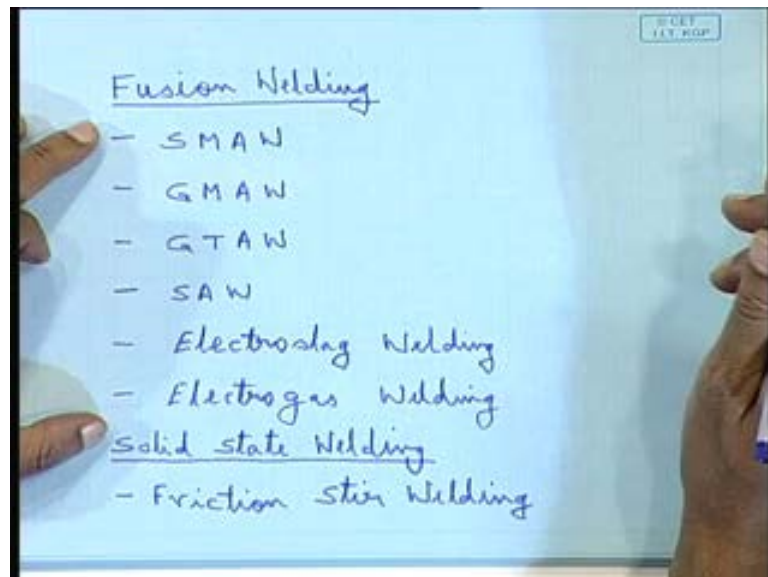 © CET
I.I.T. KGP
Fusion Welding
- SMAW
- GMAW
- GTAW
- SAW
- Electroslag Welding
- Electrogas Welding
Solid State Welding
- Friction Stir Welding